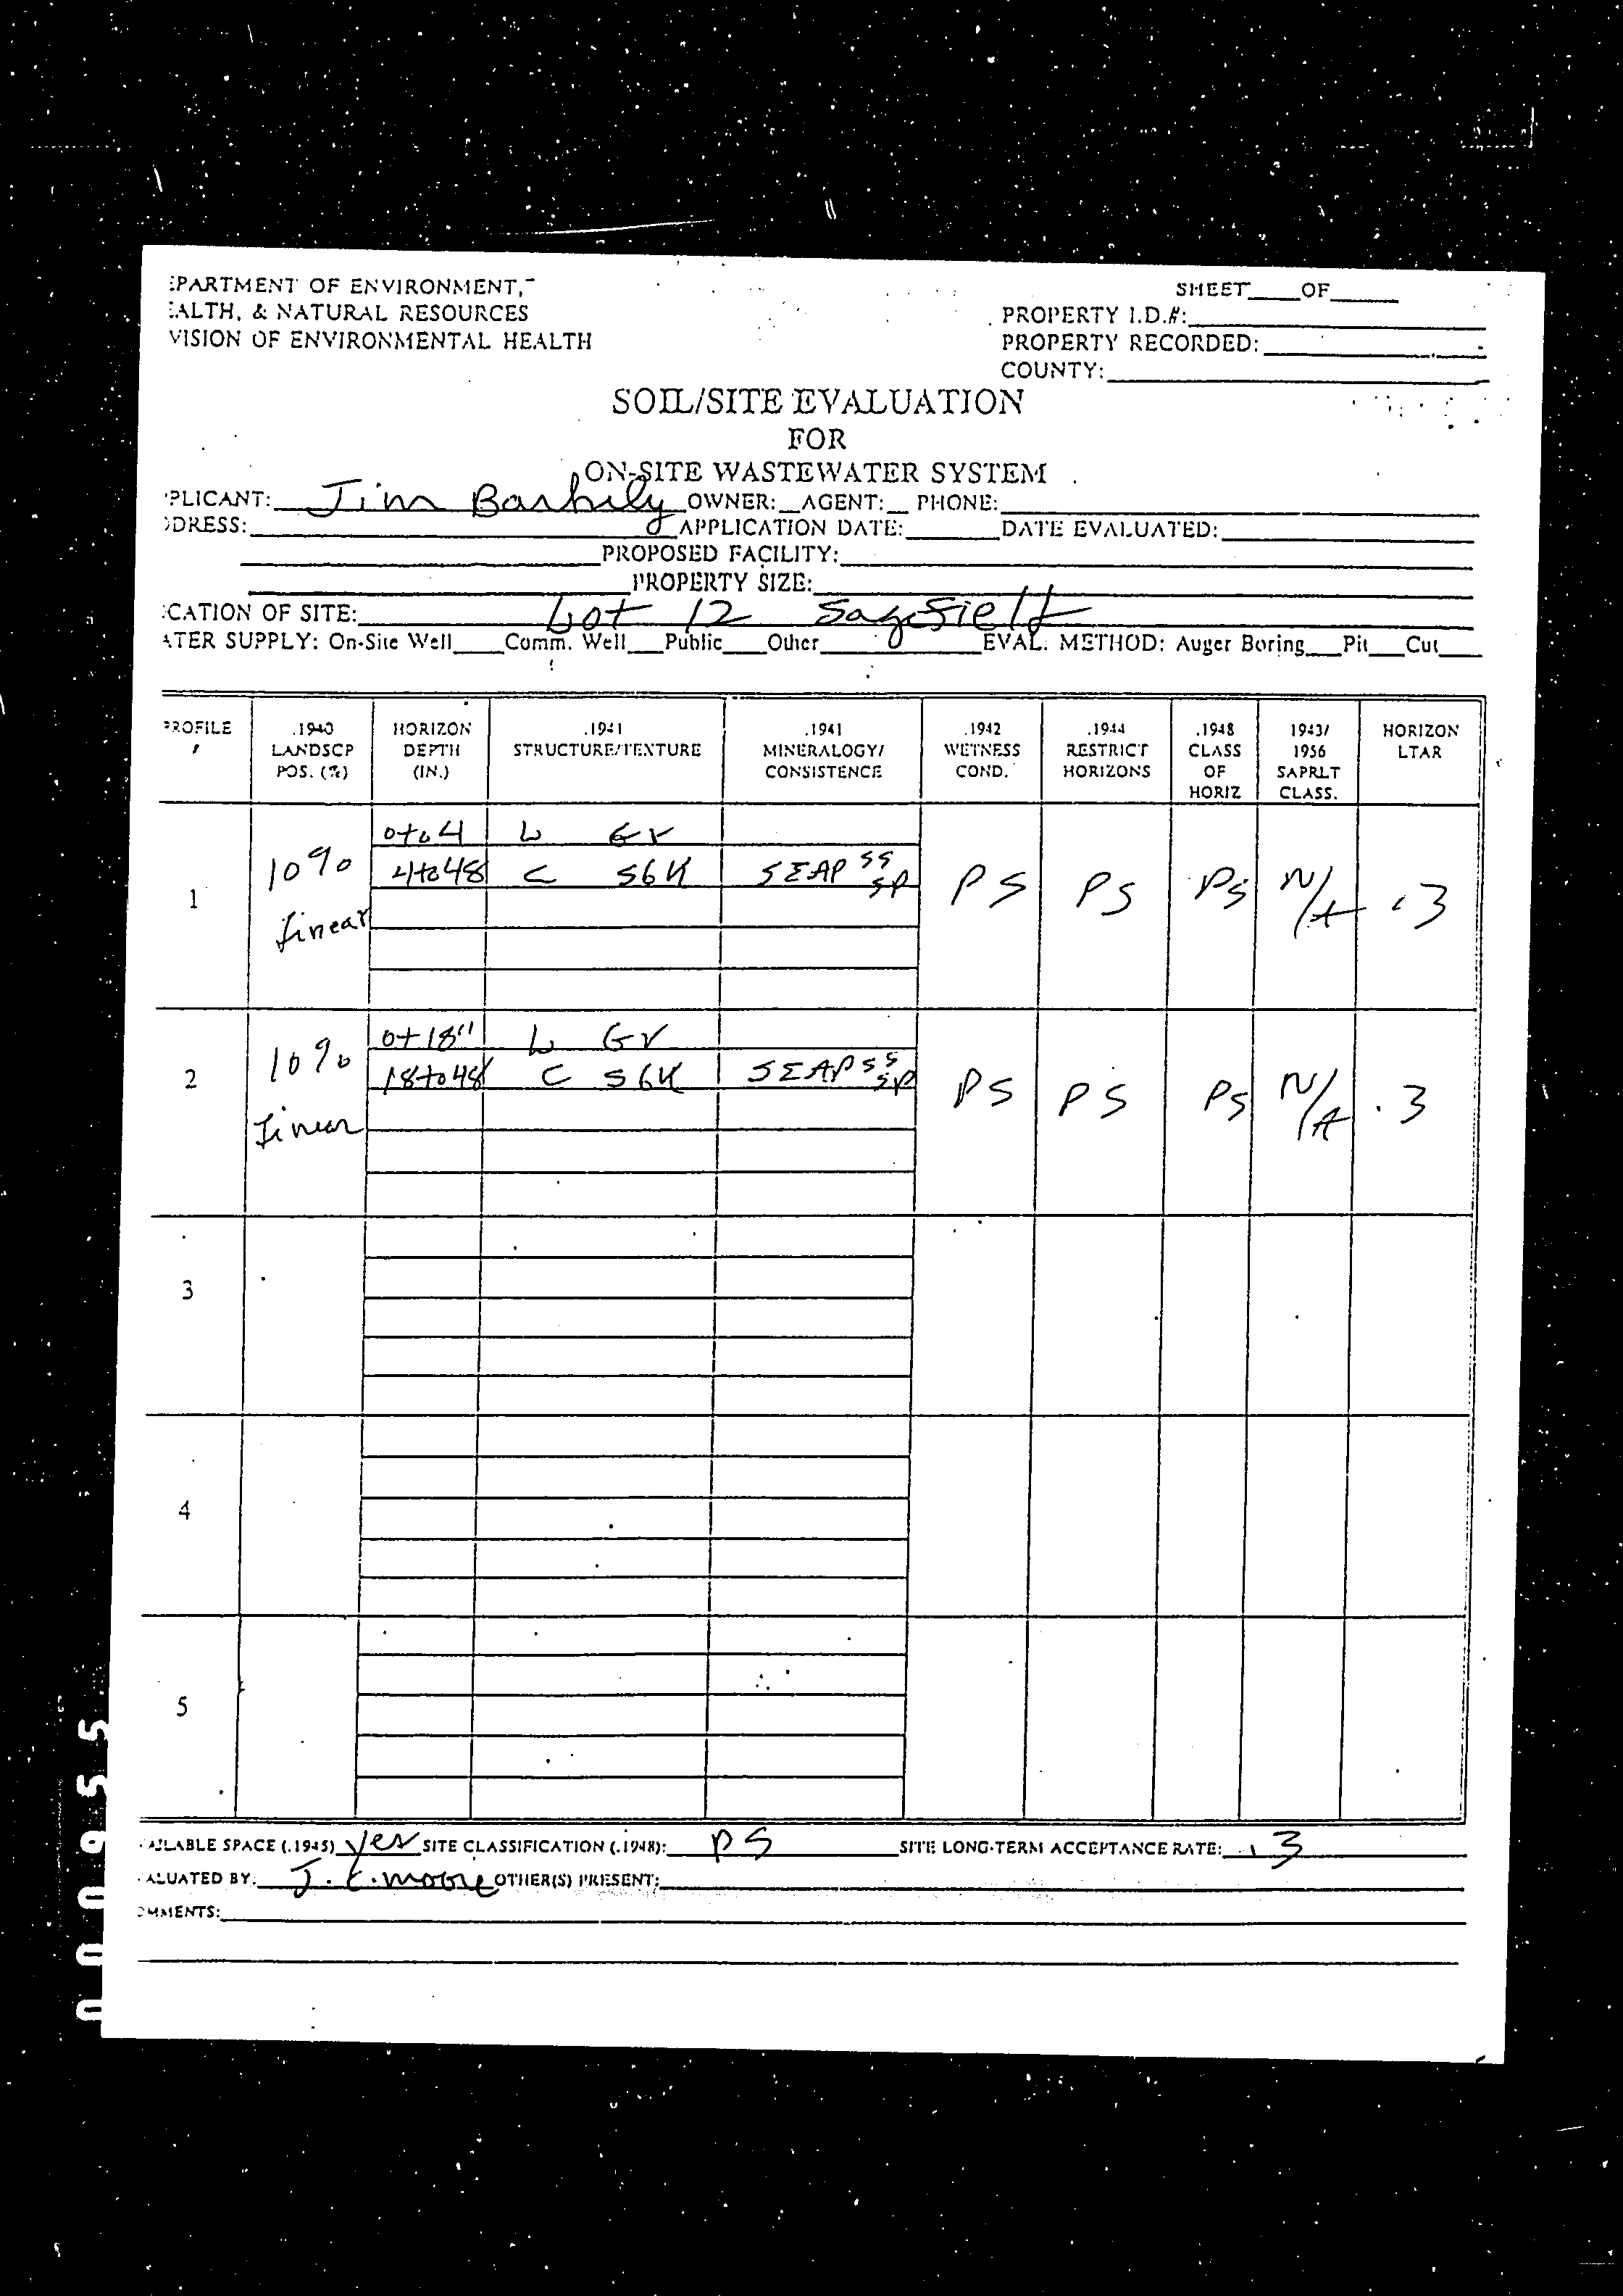 EPARTMENT OF ENVIRONMENT,
EALTH, & NATURAL RESOURCES
VISION OF ENVIRONMENTAL HEALTH
SHEET____OF____
PROPERTY I.D.#:
PROPERTY RECORDED:
COUNTY:
SOIL/SITE EVALUATION
FOR
ON-SITE WASTEWATER SYSTEM
PLICANT: Jim OWNER:__AGENT:__ PHONE:
DDRESS: APPLICATION DATE: DATE EVALUATED:
PROPOSED FACILITY:
PROPERTY SIZE:
CATION OF SITE: Lot 12
ATER SUPPLY: On-Site Well____Comm. Well___Public___Other____ EVAL. METHOD: Auger Boring___Pit___Cut___
PROFILE # .1940 LANDSCP POS. (%) HORIZON DEPTH (IN.) .1941 STRUCTURE/TEXTURE .1941 MINERALOGY/ CONSISTENCE .1942 WETNESS COND. .1944 RESTRICT HORIZONS .1948 CLASS OF HORIZ 1943/ 1956 SAPRLT CLASS. HORIZON LTAR
0to4 L Gr
1 10% 4to48 C SBK SEXP SS SP PS PS PS N/A .3
Linear
0t18" L Gr
2 10% 18to48 C SBK SEXP SS SP PS PS PS N/A .3
Linear
3
4
5
AILABLE SPACE (.1945) yes SITE CLASSIFICATION (.1948): PS SITE LONG-TERM ACCEPTANCE RATE: .3
ALUATED BY: J. E. moore OTHER(S) PRESENT:
OMMENTS: